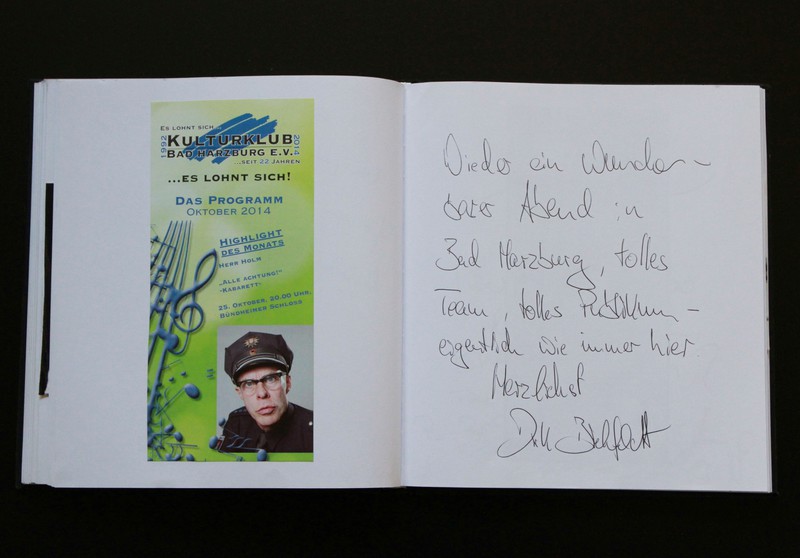 ES LOHNT SICH...
1992 KULTURKLUB 2014
BAD HARZBURG E.V.
...SEIT 22 JAHREN
...ES LOHNT SICH!
DAS PROGRAMM
OKTOBER 2014
HIGHLIGHT
DES MONATS
HERR HOLM
„ALLE ACHTUNG!“
-KABARETT-
25. OKTOBER, 20.00 UHR,
BÜNDHEIMER SCHLOSS
Wieder ein wunder-
barer Abend in
Bad Harzburg, tolles
Team, tolles Publikum –
eigentlich wie immer hier.
Herzlichst
Dirk Bielefeldt